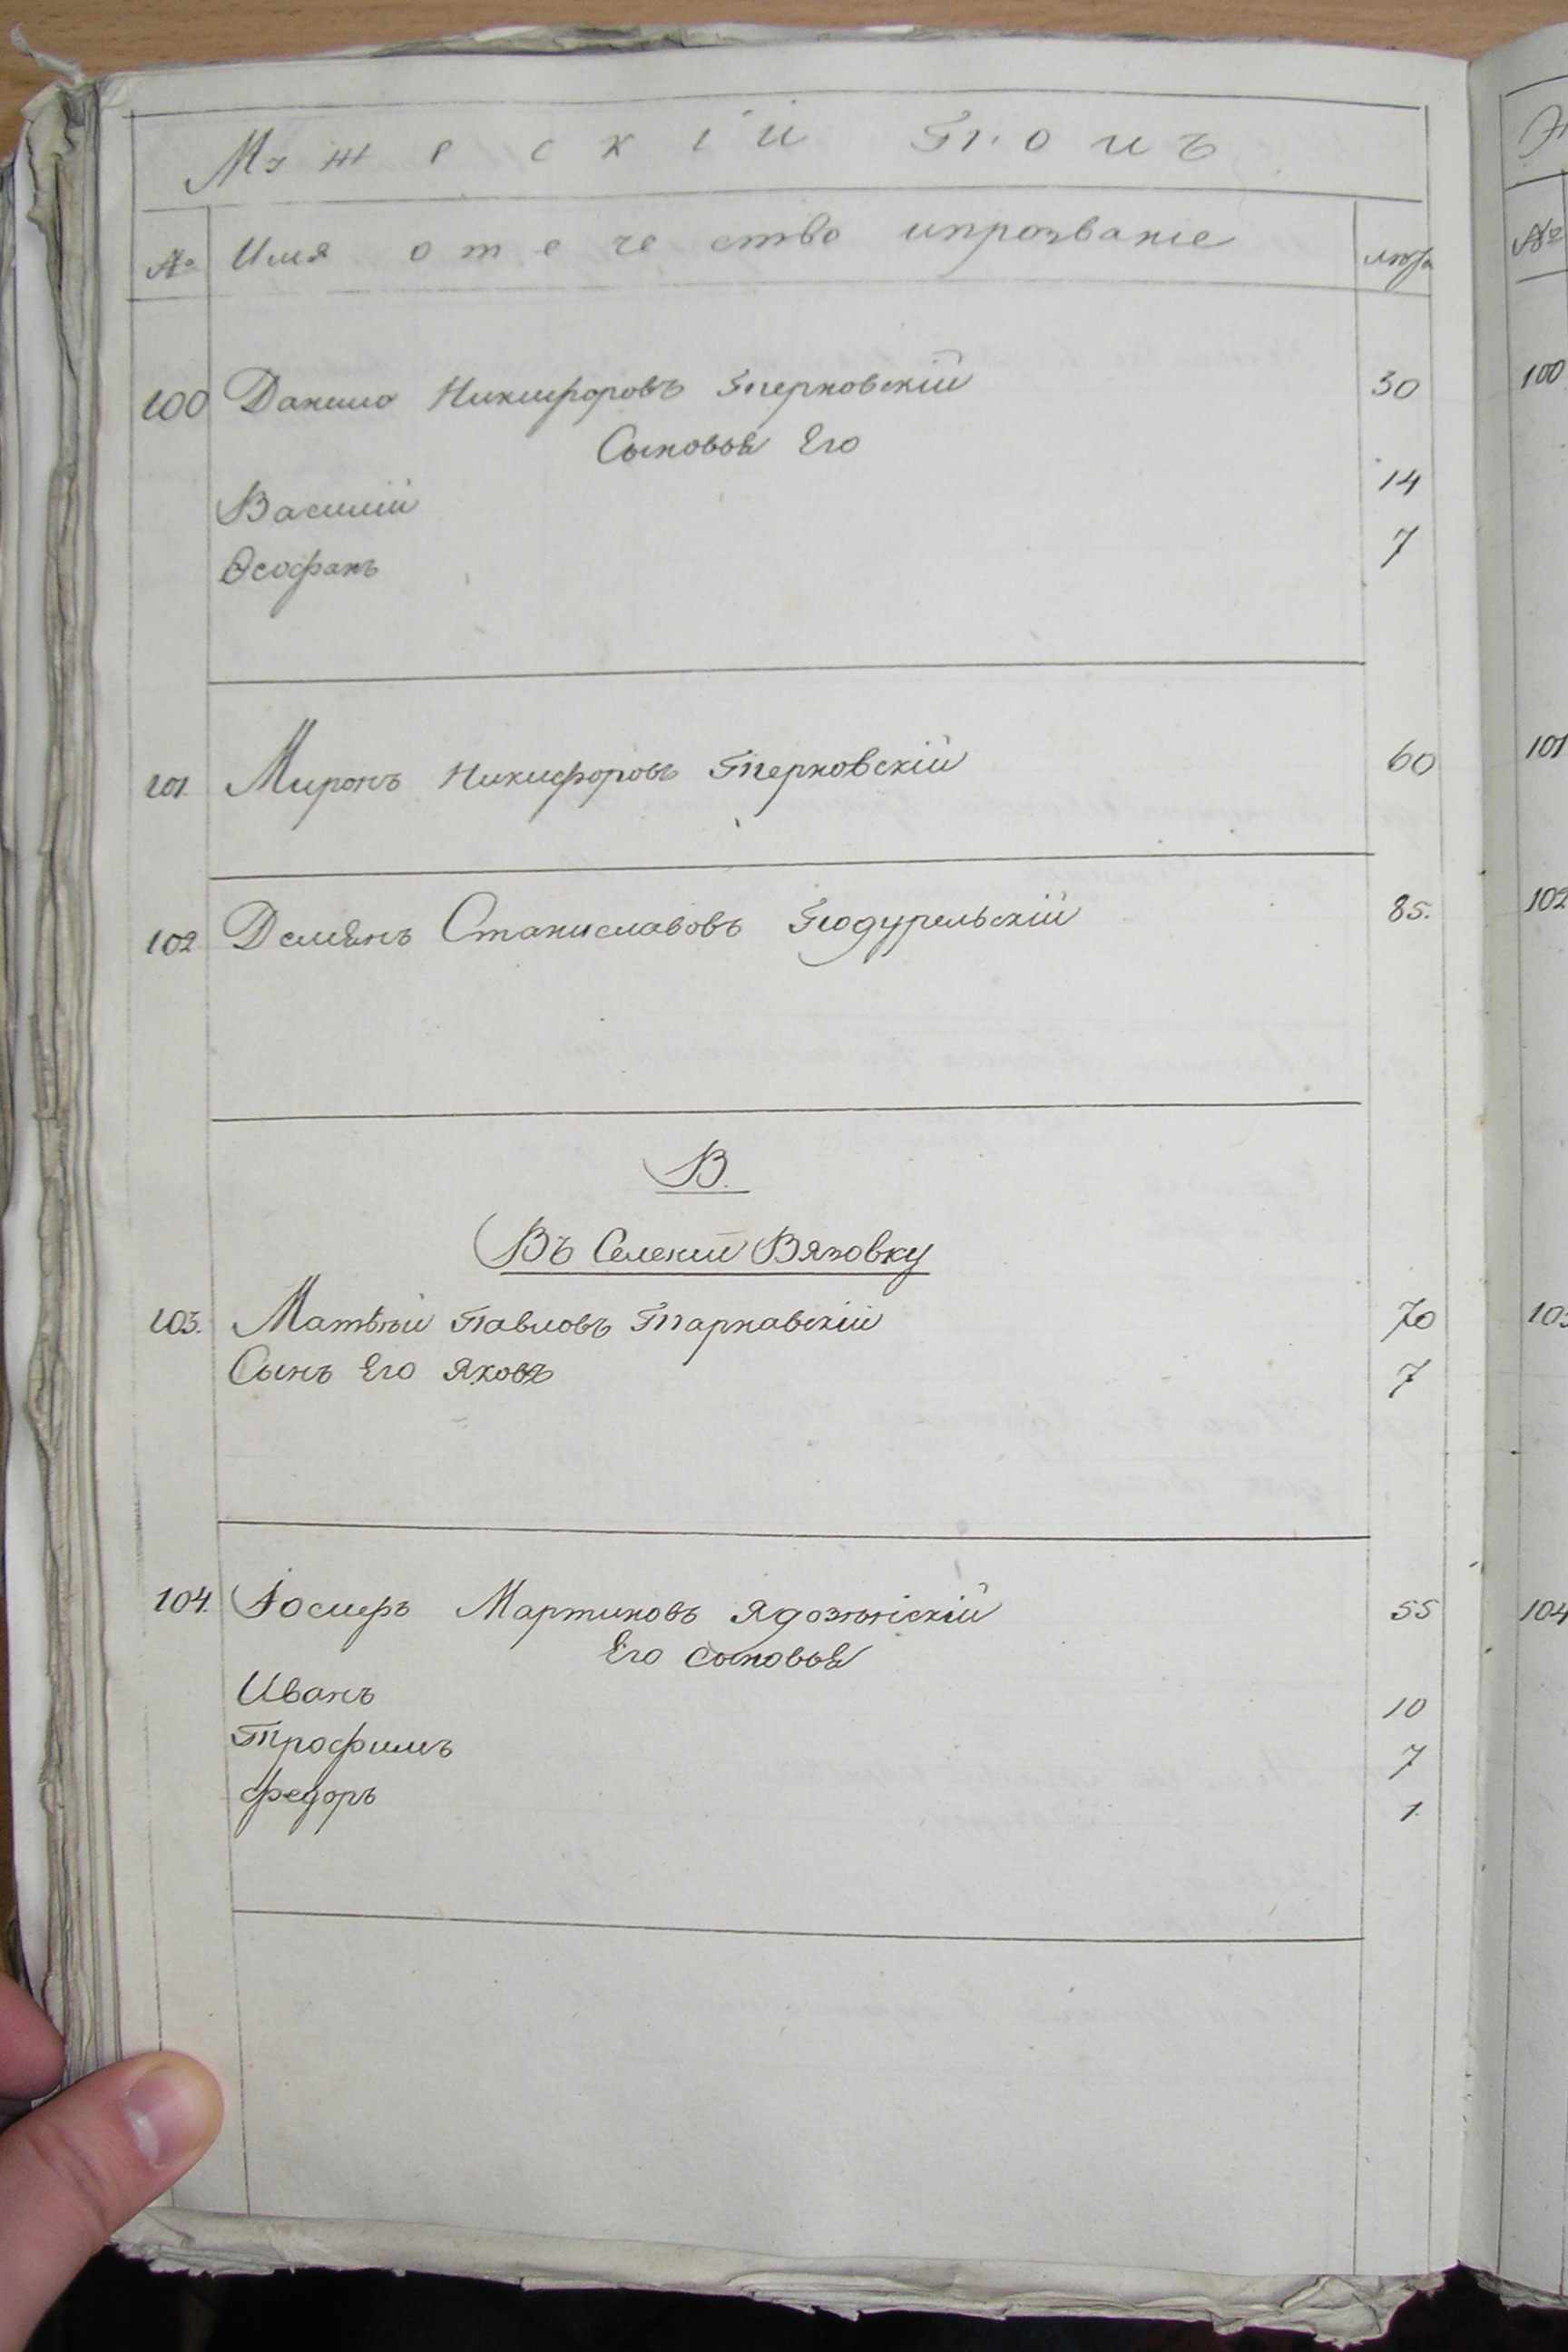 Мужескій Полъ
№ Имя отечество ипрозваніе лѣта
100 Данило Никифоровъ Терновскій 30
Сыновья Его
Василій 14
Ѳеофанъ 7
101. Миронъ Никифоровъ Терновскій 60
102. Демьянъ Станиславовъ 85.
В.
Въ Селеніи Вязовку
103. Матвѣй Павловъ Тарнавскій 70
Сынъ Его Яковъ 7
104. Іосифъ Мартиновъ 55
Его сыновья
Иванъ 10
Трофимъ 7
Федоръ 1.
№
100
101
102
103
104